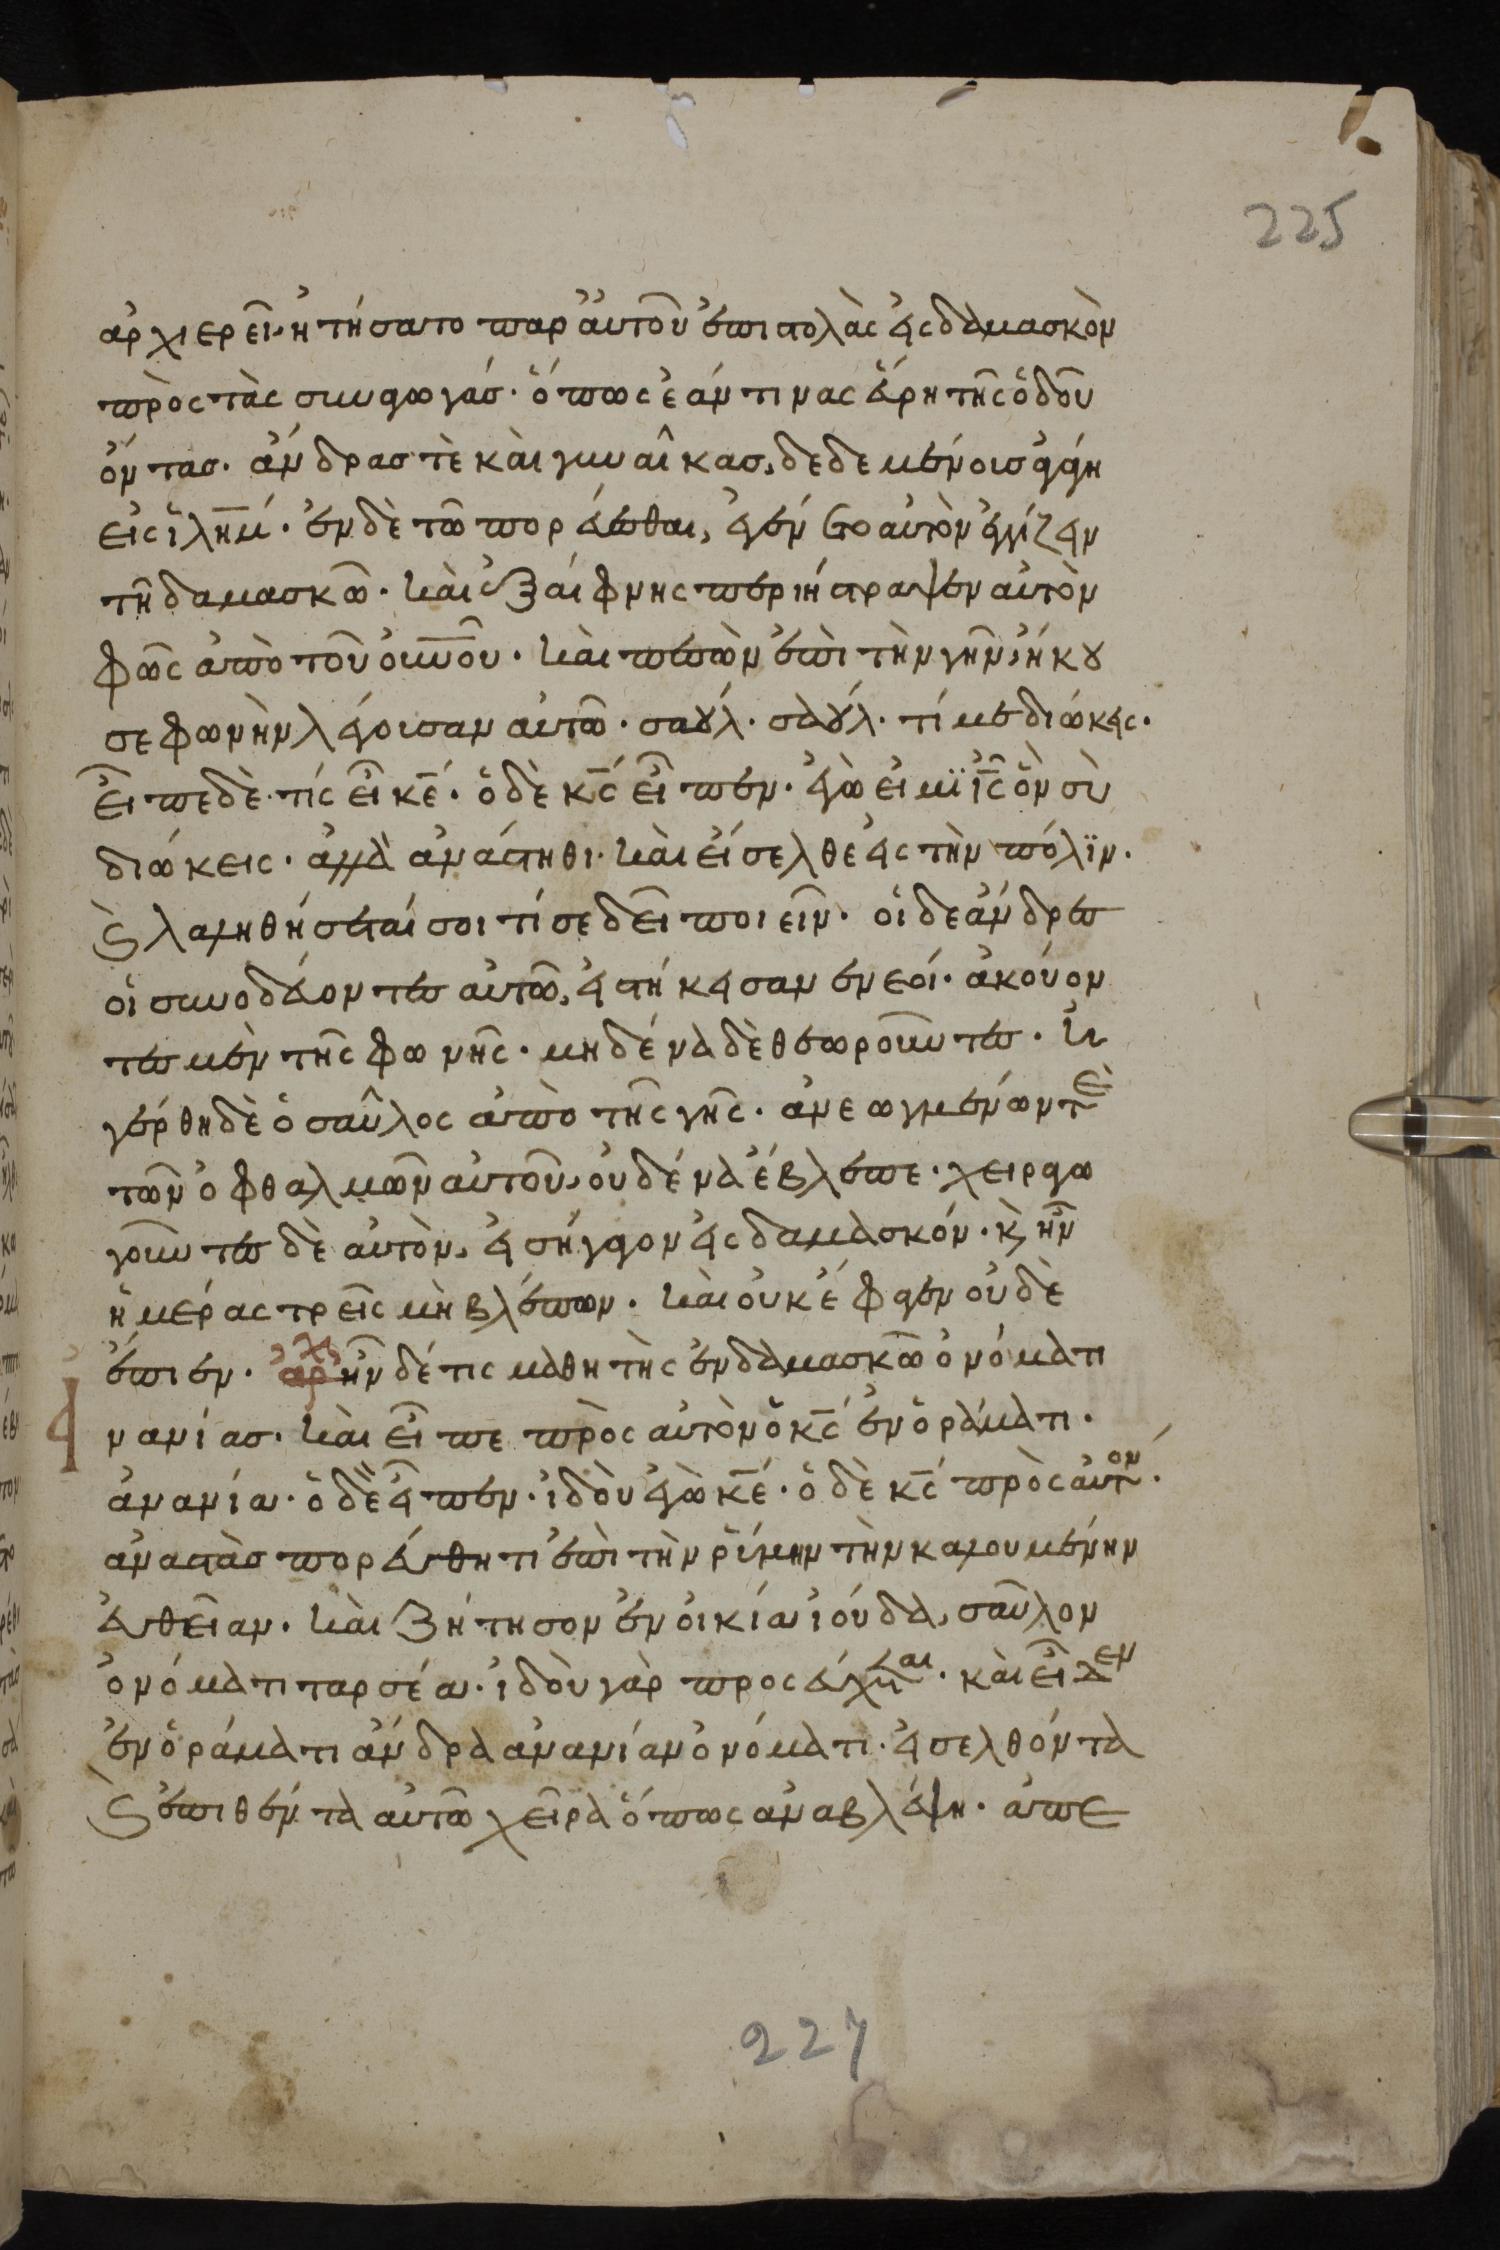 225
ἀρχιερεῖ, ἠτήσατο παρ' αὐτοῦ ἐπιστολὰς εἰς δαμασκὸν
πρὸς τὰς συναγωγάσ· ὅπως ἐάν τινας εὕρη τῆς ὁδοῦ
ὄντασ· ἄνδρας τὲ καὶ γυναῖκασ, δεδεμένους ἀγάγη
εἰς ἱλημ̅· ἐν δὲ τῶ πορεύεσθαι, ἐγένετο αὐτὸν ἐγγίζειν
τῆ δαμασκῶ· καὶ ἐξαίφνης περιήστραψεν αὐτὸν
φῶς ἀπὸ τοῦ οὐ̅νοῦ· καὶ πεσὼν ἐπὶ τὴν γῆν, ἤκου
σε φωνὴν λέγουσαν αὐτῶ· σαούλ· σαούλ· τί με διώκεις·
εἶπε δὲ· τίς εἶ κε̅· ὁ δὲ κς̅ εἶπεν· ἐγὼ εἰμϊ ις̅ ὃν σὺ
διώκεις· ἀλλὰ ἀνάστηθι· καὶ εἴσελθε εἰς τὴν πόλϊν·
καὶ λαληθήσεταί σοι τί σε δεῖ ποιεῖν· οἱ δε ἄνδρες
οἱ συνοδεύοντες αὐτῶ, εἱστήκεισαν ἐνεοί· ἀκούον
τες μὲν τῆς φωνῆς· μηδένα δὲ θεωροῦντες· ἠ
γέρθη δὲ ὁ σαῦλος ἀπὸ τῆς γῆς· ἀνεωγμένων τὲ
τῶν ὀφθαλμῶν αὐτοῦ, οὐδένα ἔβλεπε· χειραγω
γοῦντες δὲ αὐτὸν, εἰσήγαγον εἰς δαμασκόν· κ̀ ἦν
ἡμέρας τρεῖς μὴ βλέπων· καὶ οὐκ ἔφαγεν οὐδὲ
ἔπιεν· ἀρχ ἦν δέ τις μαθητὴς ἐν δαμασκῶ ὀνόματι
ἀνανίασ· καὶ εἶπε πρὸς αὐτὸν ὁ κς̅ ἐν ὁράματι·
ἀνανία· ὁ δὲ εἶπεν· ἰδοὺ ἐγὼ κε̅· ὁ δὲ κς̅ πρὸς αὐτόν·
ἀναστὰσ πορεύθητι ἐπὶ τὴν ῥύμην τὴν καλουμένην
εὐθεῖαν· καὶ ζήτησον ἐν οἰκία ἰούδα, σαῦλον
ὀνόματι ταρσέα· ἰδοὺ γὰρ προσεύχεται· καὶ εἶδεν
ἐν ὁράματι ἄνδρα ἀνανίαν ὀνόματι· εἰσελθόντα
καὶ ἐπιθέντα αὐτῶ χεῖρα ὅπως ἀναβλέψη· ἀπε
227